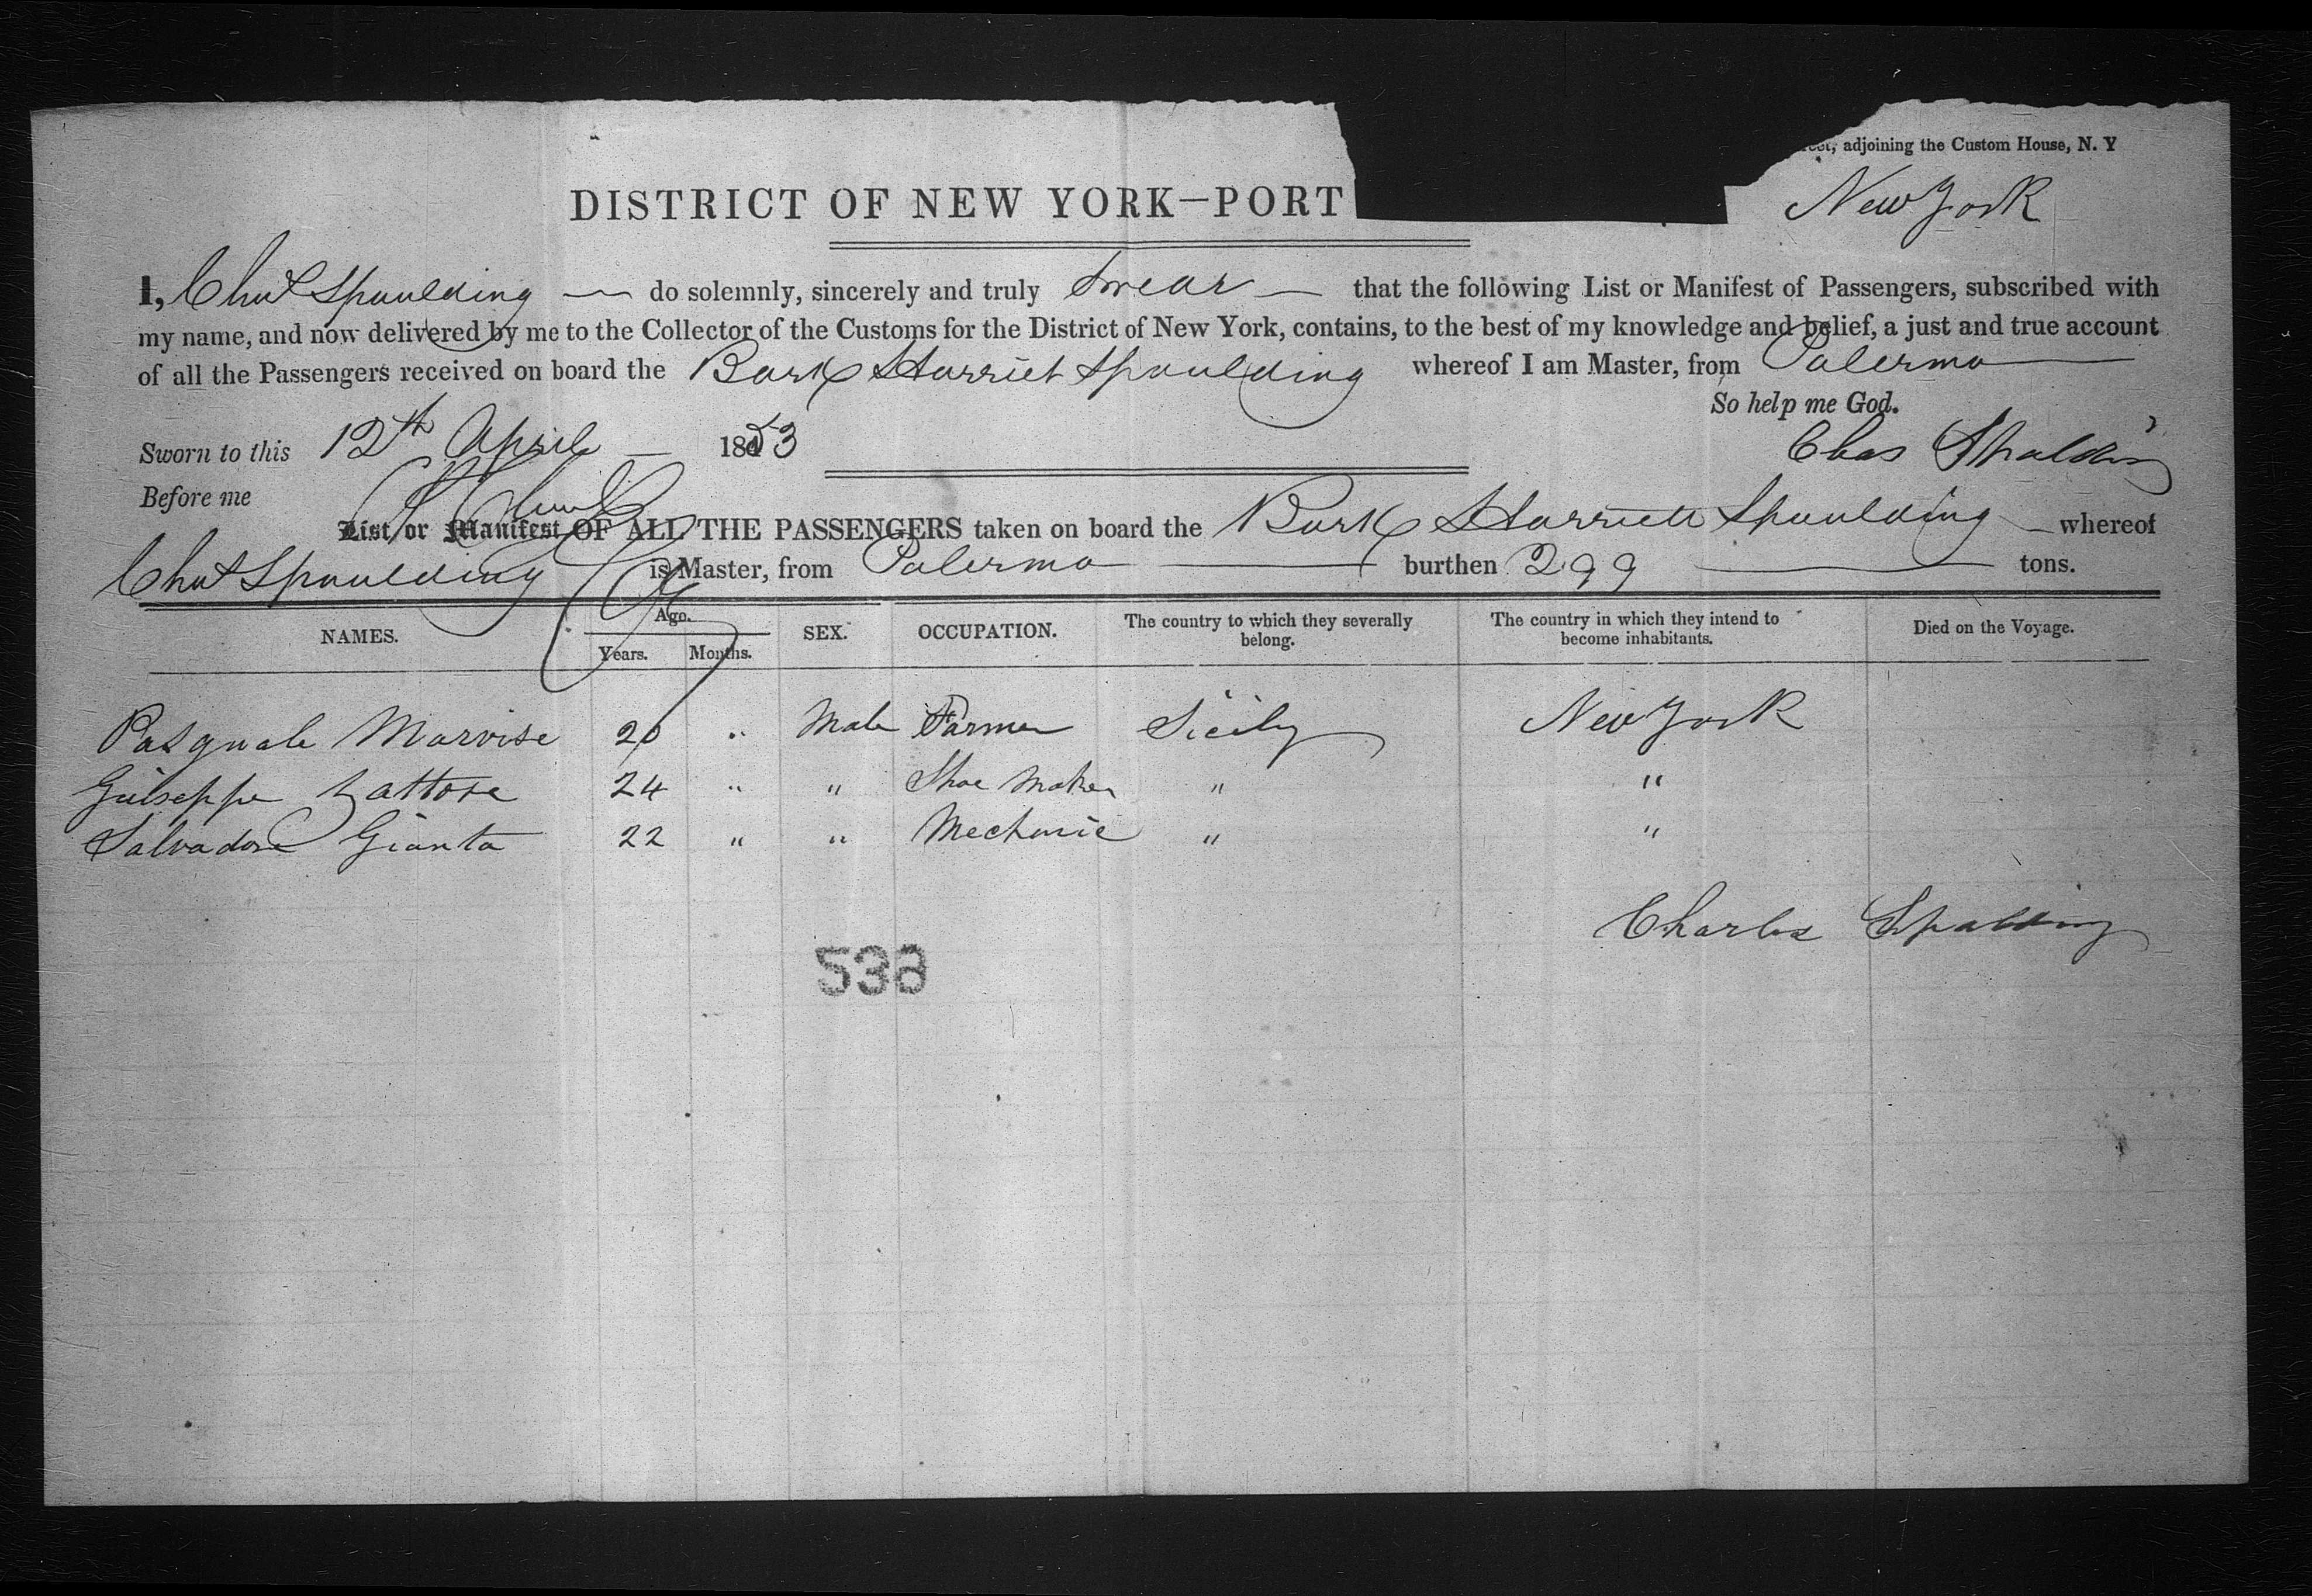 adjoining the Custom House, N. Y
DISTRICT OF NEW YORK—PORT
New York
I, Chas Spaulding — do solemnly, sincerely and truly Swear — that the following List or Manifest of Passengers, subscribed with
my name, and now delivered by me to the Collector of the Customs for the District of New York, contains, to the best of my knowledge and belief, a just and true account
of all the Passengers received on board the Bark Harriet Spaulding whereof I am Master, from Palermo
So help me God.
Sworn to this 12th April — 1853
Chas Spalding
Before me
List or Manifest OF ALL THE PASSENGERS taken on board the Bark Harriett Spaulding — whereof
Chas Spaulding is Master, from Palermo — burthen 299 — tons.
NAMES. Age. Years. Months. SEX. OCCUPATION. The country to which they severally belong. The country in which they intend to become inhabitants. Died on the Voyage.
Pasquale Marvise 20 " Male Farmer Sicily New York
Guiseppe Lattore 24 " " Shoe Maker " "
Salvadore Gianta 22 " " Mechanic " "
Charles Spalding
538